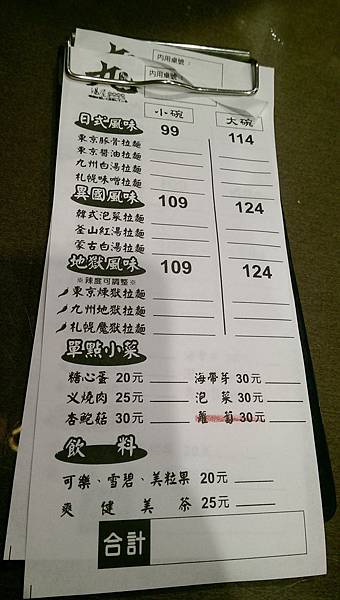 內用桌號：
內用桌號：
小碗 大碗
日式風味 99 114
東京豚骨拉麵
東京醬油拉麵
九州白湯拉麵
札幌味噌拉麵
異國風味 109 124
韓式泡菜拉麵
釜山紅湯拉麵
蒙古白湯拉麵
地獄風味 109 124
※辣度可調整※
東京煉獄拉麵
九州地獄拉麵
札幌魔獄拉麵
單點小菜
糖心蛋 20元 海帶芽 30元
叉燒肉 25元 泡菜 30元
杏鮑菇 30元 蘿蔔 30元
飲料
可樂、雪碧、美粒果 20元
爽健美茶 25元
合計